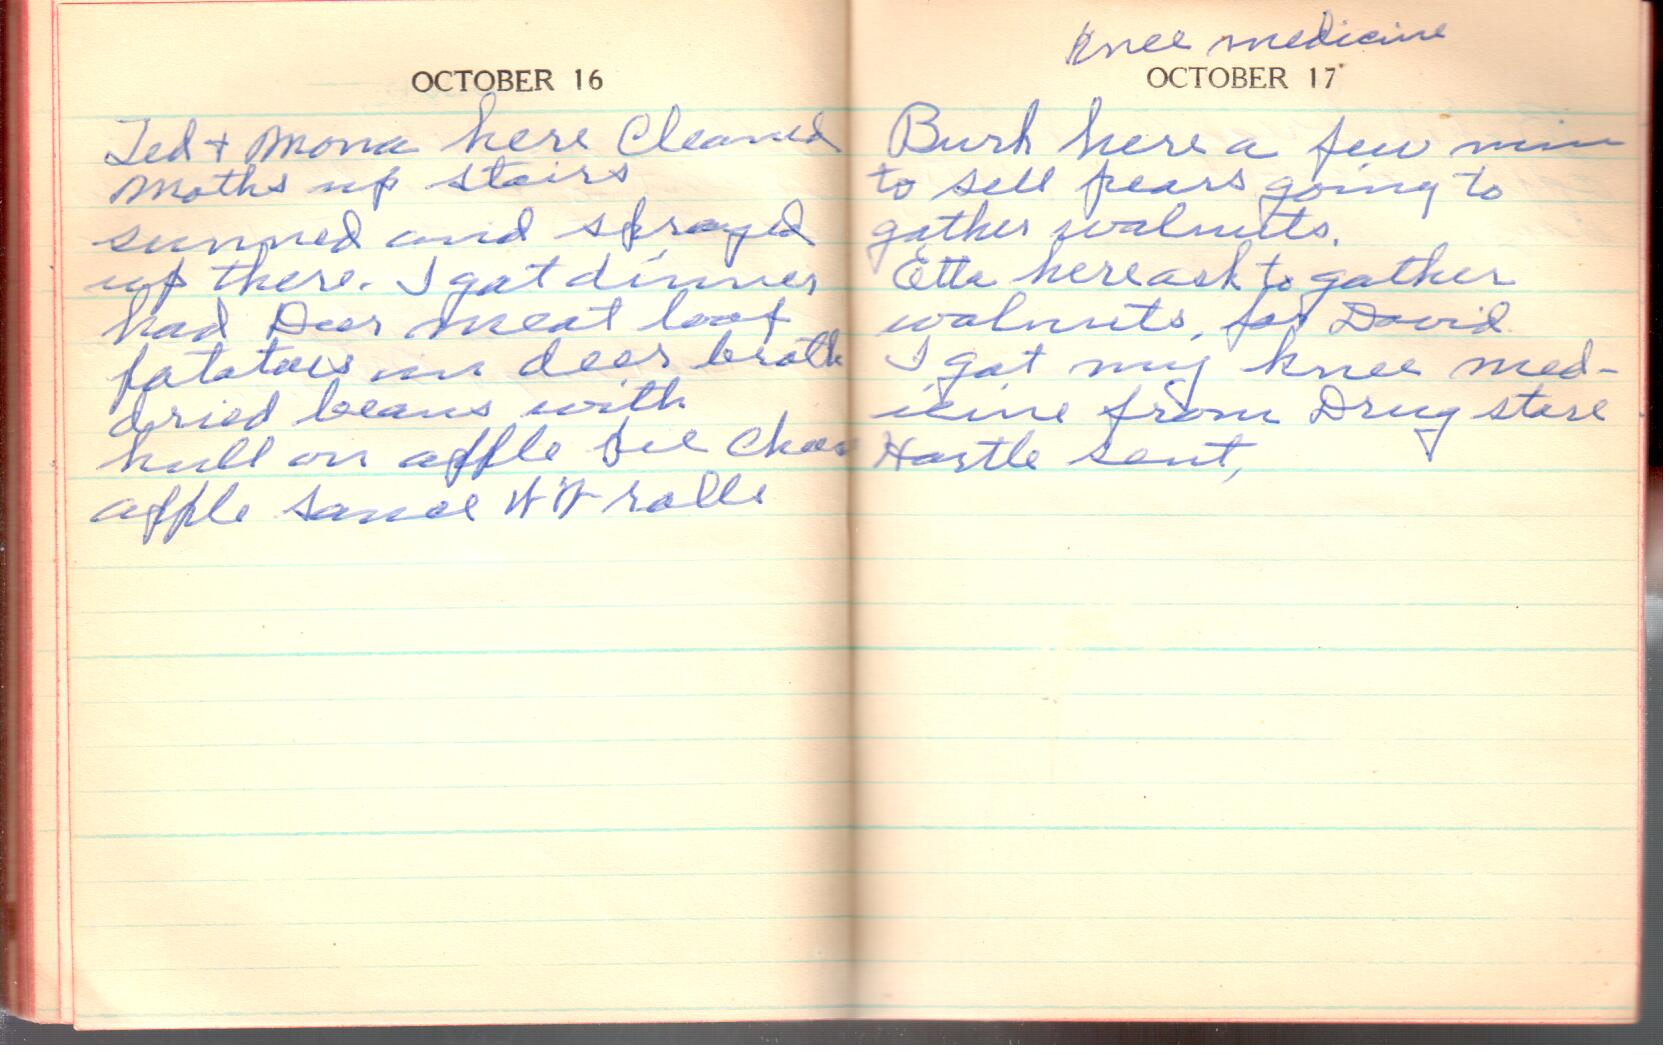 OCTOBER 16
Ted + Mona here Cleaned
Moths up stairs
sunned and sprayed
up there. I got dinner
had Deer meat loaf
potatoes in deer broth
dried beans with
hull on apple pie
apple sauce WW rolls
Knee medicine
OCTOBER 17
Burk here a few min
to sell pears going to
gather walnuts.
Etta here ask to gather
walnuts, for David
I got my knee med-
icine from Drug store
Hartle sent,